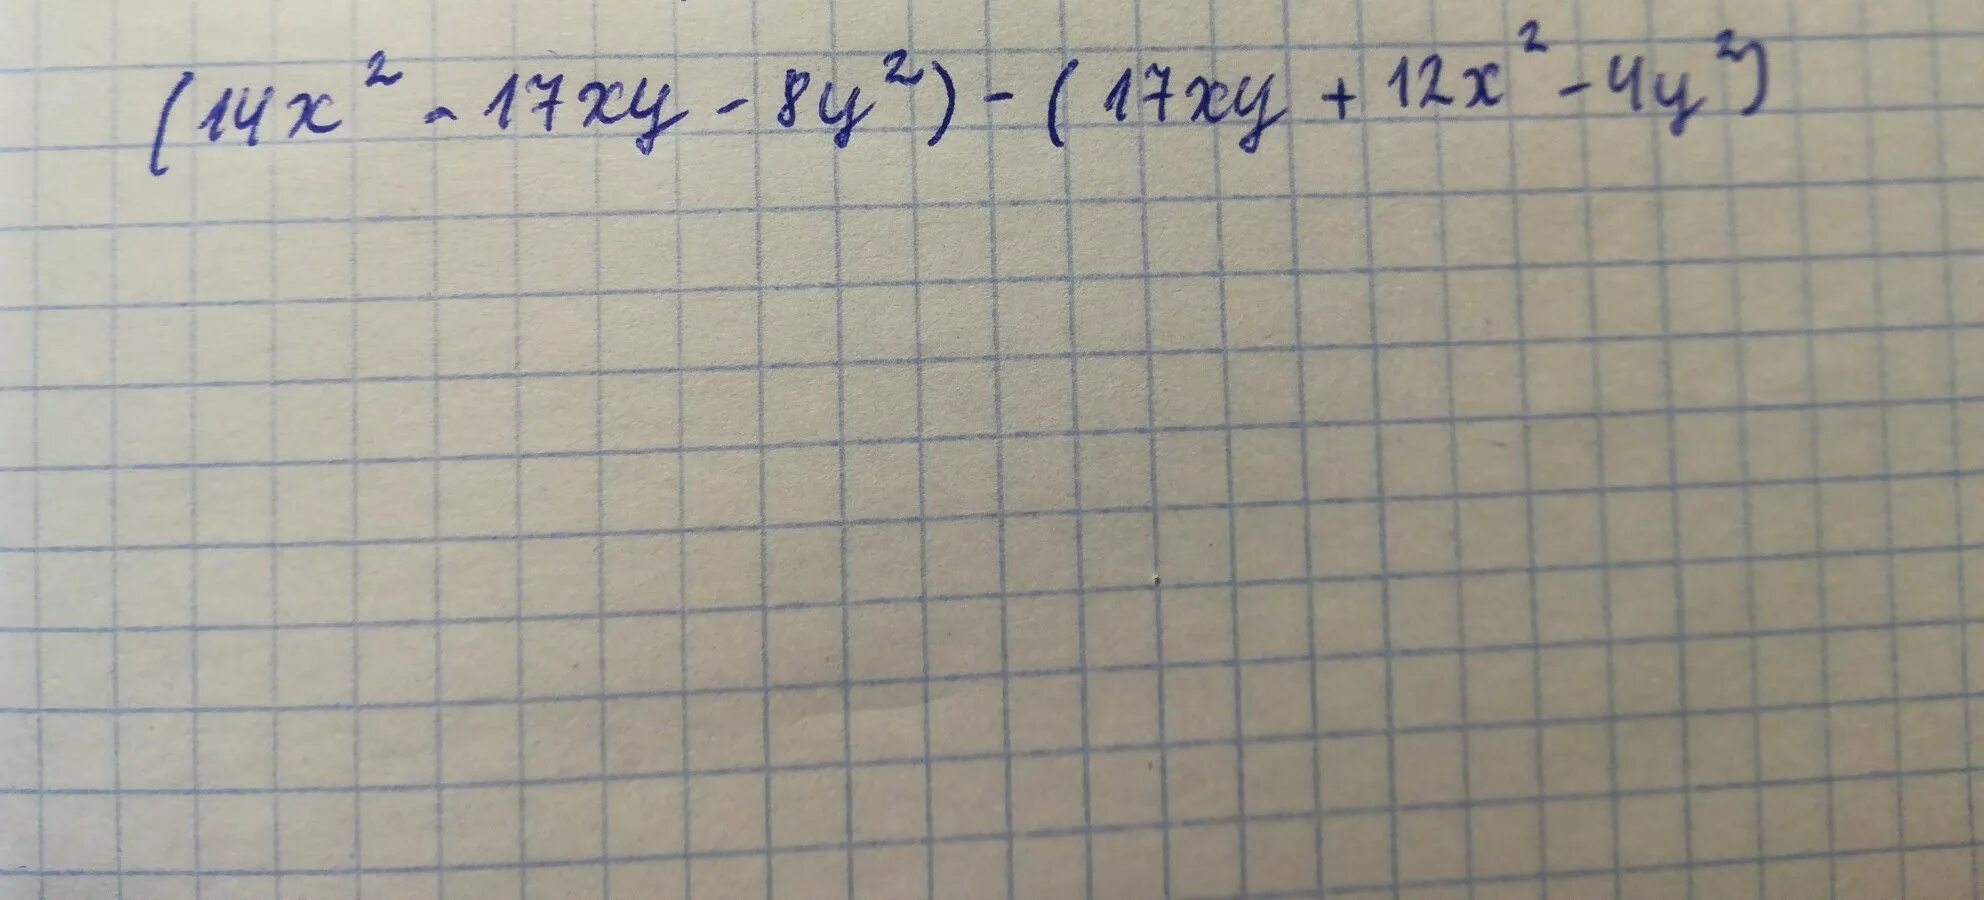 (14x² - 17xy - 8y²) - (17xy + 12x² - 4y²)